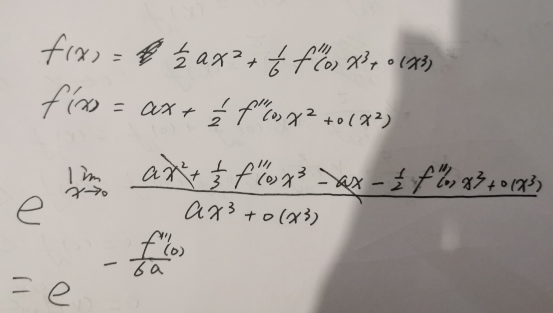 f(x) = ½ax² + ⅙f'''(0)x³ + o(x³)
f'(x) = ax + ½f'''(0)x² + o(x²)
e^{lim_{x→0} (ax² + ⅓f'''(0)x³ - ax - ½f'''(0)x³ + o(x³)) / (ax³ + o(x³))}
= e^{-f'''(0)/6a}